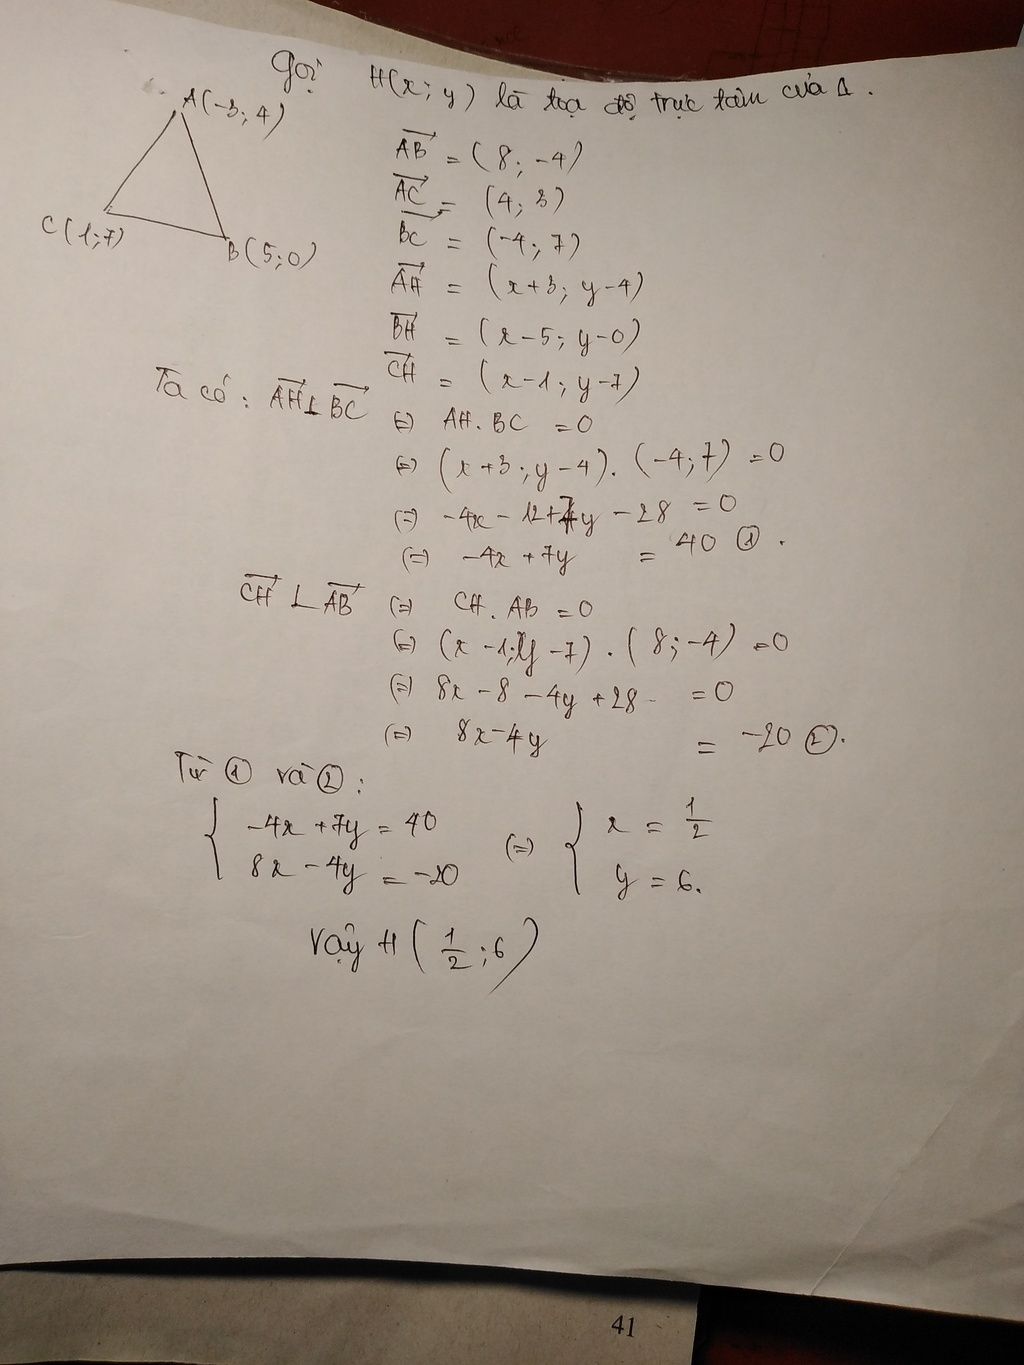 Gọi H(x; y) là tọa độ trực tâm của Δ.
A(-3; 4)
C(1; 7)
B(5; 0)
AB = (8; -4)
AC = (4; 3)
BC = (-4; 7)
AH = (x+3; y-4)
BH = (x-5; y-0)
CH = (x-1; y-7)
Ta có: AH ⊥ BC (=) AH. BC = 0
(=) (x+3; y-4). (-4; 7) = 0
(=) -4x - 12 + 7y - 28 = 0
(=) -4x + 7y = 40 ①.
CH ⊥ AB (=) CH. AB = 0
(=) (x-1; y-7). (8; -4) = 0
(=) 8x - 8 - 4y + 28 = 0
(=) 8x - 4y = -20 ②.
Từ ① và ②:
{ -4x + 7y = 40 (=) { x = 1/2
8x - 4y = -20 y = 6.
Vậy H (1/2; 6)
41